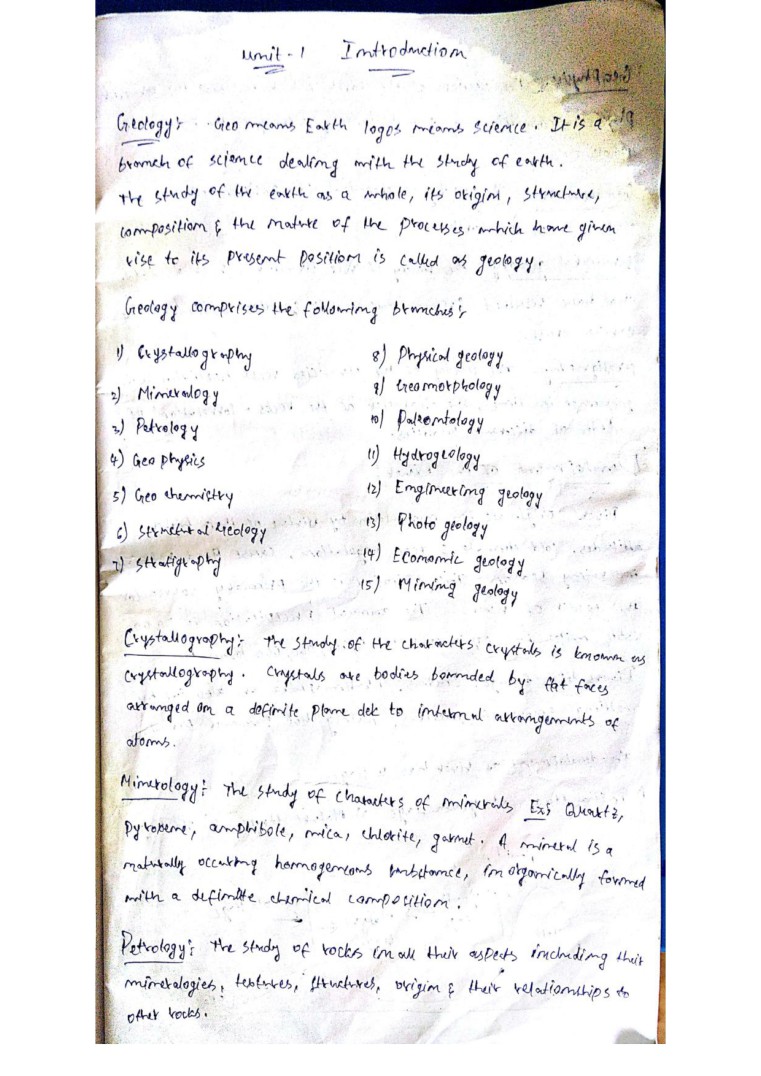 Unit - 1 Introduction
Geophysics
Geology :- Geo means Earth logos means science. It is a
branch of science dealing with the study of earth.
The study of the earth as a whole, its origin, structure,
composition & the nature of the processes which have given
rise to its present position is called as geology.
Geology comprises the following branches :-
1) Crystallography
2) Mineralogy
3) Petrology
4) Geo physics
5) Geo chemistry
6) Structural Geology
7) Stratigraphy
8) Physical geology
9) Geomorphology
10) Paleontology
11) Hydrogeology
12) Engineering geology
13) Photo geology
14) Economic geology
15) Mining geology
Crystallography :- The study of the characters crystals is known as
crystallography. Crystals are bodies bounded by flat faces
arranged on a definite plane to internal arrangements of
atoms.
Minerology :- The study of characters of minerals Ex :- Quartz,
pyroxene, amphibole, mica, chlorite, garnet. A mineral is a
naturally occuring homogeneous substance, inorganically formed
with a definite chemical composition.
Petrology :- The study of rocks in all their aspects including their
mineralogies, textures, structures, origin & their relationships to
other rocks.